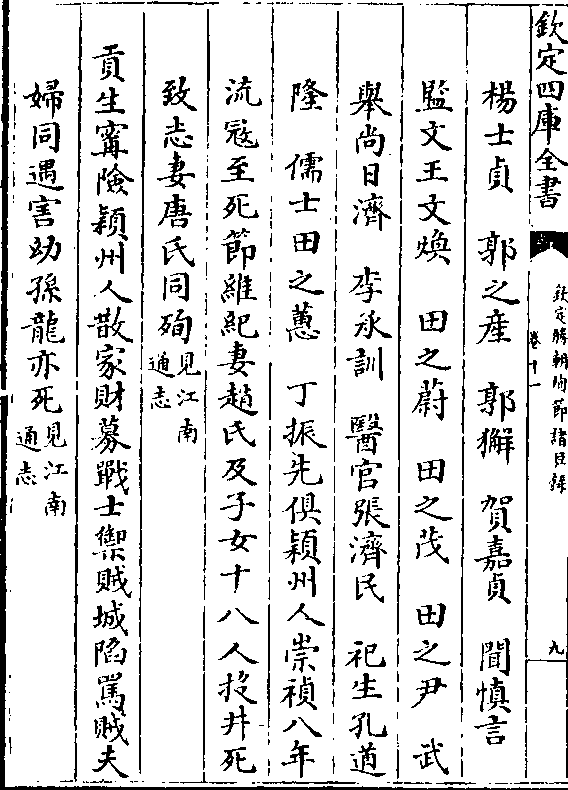 欽定四庫全書
欽定勝朝殉節諸臣錄
卷十一
九
楊士貞　郭之產　郭獬　賀嘉貞　閻慎言
監文王文煥　田之蔚　田之茂　田之尹　武
舉尚日濟　李承訓　醫官張濟民　祀生孔道
隆　儒士田之蕙　丁振先俱潁州人崇禎八年
流寇至死節維紀妻趙氏及子女十八人投井死
致志妻唐氏同殉見江南通志
貢生甯險潁州人散家財募戰士禦賊城陷罵賊夫
婦同遇害幼孫龍亦死見江南通志